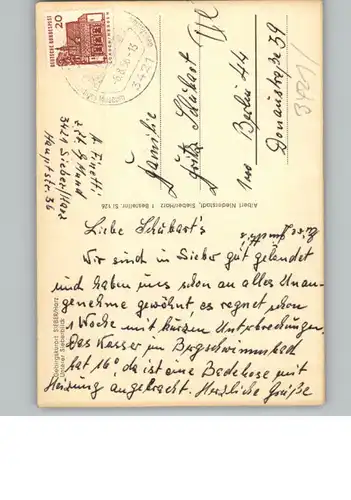 DEUTSCHE BUNDESPOST
20
3421
A. Finetti
z.Zt. G. Mund
3421 Sieber/Harz
Hauptstr. 36
Familie
Fritz Schubart
1000 Berlin 44
Donaustraße 39
Albert Niederstadt, Sieber/Harz 1 Bestellnr. Si 126
Gebirgskurort SIEBER/Harz
Unterer Sieberblick
Liebe Schubart's
Wir sind in Sieber gut gelandet
und haben uns schon an alles Unan-
genehme gewöhnt, es regnet schon
1 Woche mit kurzen Unterbrechungen.
Das Wasser im Bergschwimmbad
hat 16°, da ist eine Badehose mit
Heizung angebracht. Herzliche Grüße